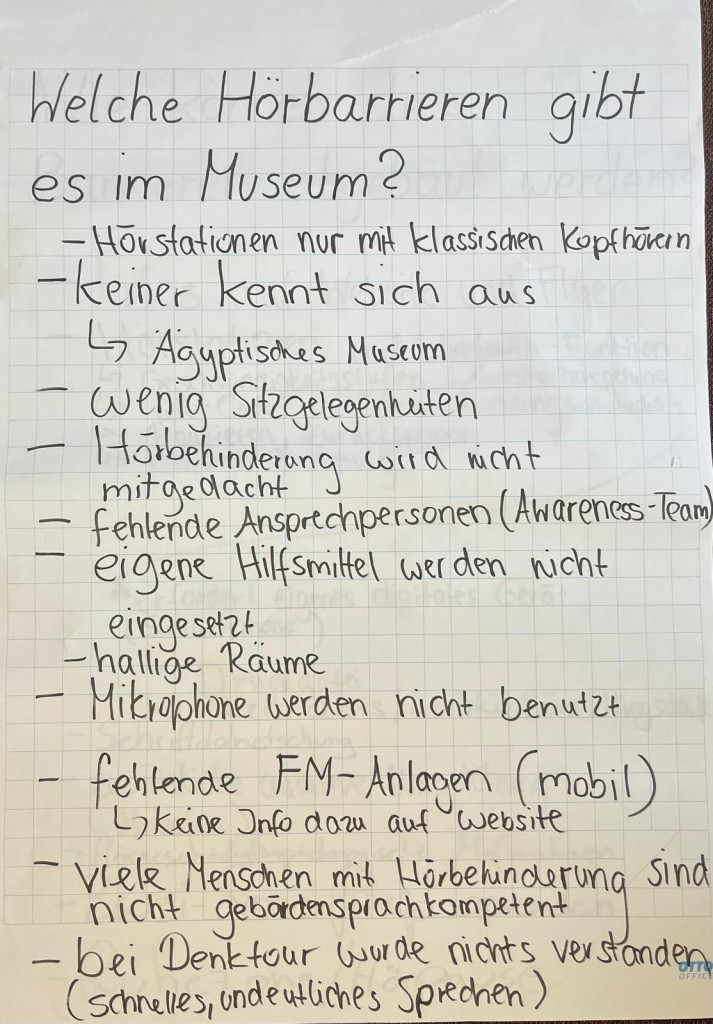 Welche Hörbarrieren gibt
es im Museum?
- Hörstationen nur mit klassischen Kopfhörern
- keiner kennt sich aus
↳ Ägyptisches Museum
- wenig Sitzgelegenheiten
- Hörbehinderung wird nicht
mitgedacht
- fehlende Ansprechpersonen (Awareness-Team)
- eigene Hilfsmittel werden nicht
eingesetzt
- hallige Räume
- Mikrophone werden nicht benutzt
- fehlende FM-Anlagen (mobil)
↳ Keine Info dazu auf Website
- viele Menschen mit Hörbehinderung sind
nicht gebärdensprachkompetent
- bei Denktour wurde nichts verstanden
(schnelles, undeutliches Sprechen)
OTTO
OFFICE